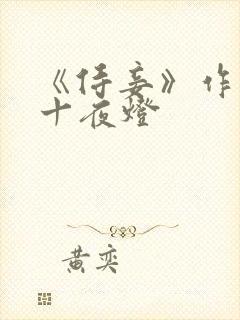 《侍妾》作
十夜燈
黄奕